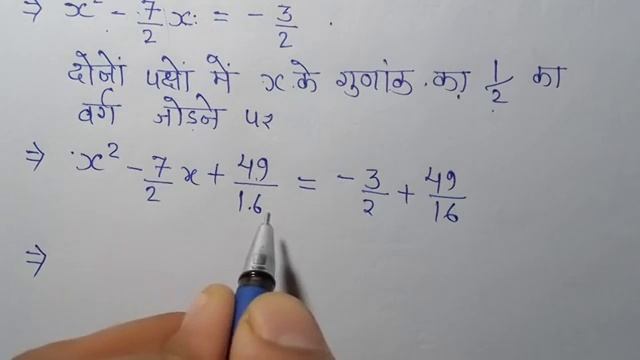 ⇒ x² - 7/2 x = - 3/2
दोनों पक्षों में x के गुनांक का 1/2 का
वर्ग जोड़ने पर
⇒ x² - 7/2 x + 49/16 = - 3/2 + 49/16
⇒